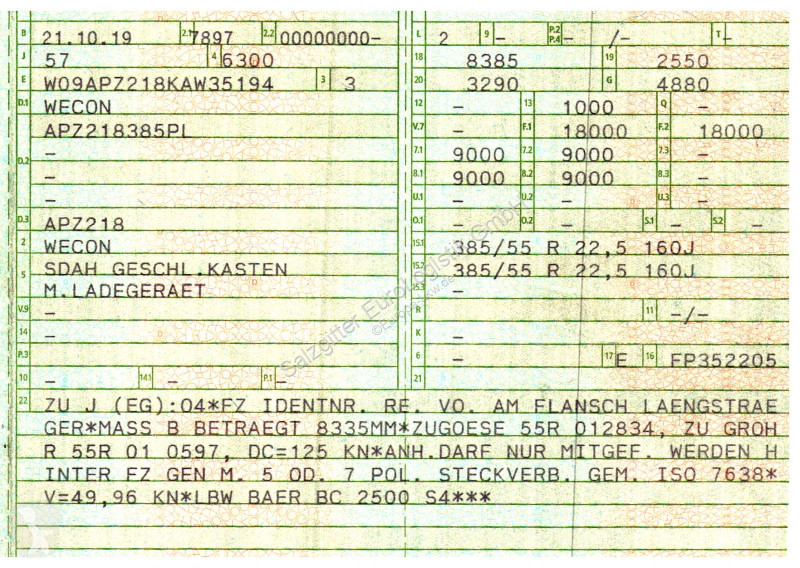 B 21.10.19 2.1 7897 2.2 00000000- L 2 9 – P.2 P.4 – /– T –
J 57 4 6300 18 8385 19 2550
E W09APZ218KAW35194 3 3 20 3290 G 4880
D.1 WECON 12 – 13 1000 Q –
APZ218385PL V.7 – F.1 18000 F.2 18000
D.2 – 7.1 9000 7.2 9000 7.3 –
– 8.1 9000 8.2 9000 8.3 –
– U.1 – U.2 – U.3 –
D.3 APZ218 O.1 – O.2 – S.1 – S.2 –
2 WECON 15.1 385/55 R 22,5 160J
5 SDAH GESCHL.KASTEN 15.2 385/55 R 22,5 160J
M.LADEGERAET 15.3 –
V.9 – R 11 –/–
14 – K –
P.3 6 – 17 E 16 FP352205
10 – 14.1 – P.1 – 21
22 ZU J (EG):04*FZ IDENTNR. RE. VO. AM FLANSCH LAENGSTRAE
GER*MASS B BETRAEGT 8335MM*ZUGOESE 55R 012834, ZU GROH
R 55R 01 0597, DC=125 KN*ANH.DARF NUR MITGEF. WERDEN H
INTER FZ GEN M. 5 OD. 7 POL. STECKVERB. GEM. ISO 7638*
V=49,96 KN*LBW BAER BC 2500 S4***
Salzgitter Eurologistik GmbH